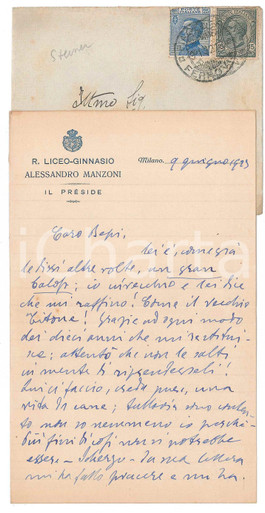 Steiner
Ill.mo Sig.
R. LICEO-GINNASIO
ALESSANDRO MANZONI
IL PRESIDE
Milano, 9 giugno 1933
Caro Bepi,
Lei è, come già
le dissi altre volte, un gran
; io invecchio e lei dice
che mi raffino! Come il vecchio
Titone! Grazie ad ogni modo
dei dieci anni che mi restitui-
sce; attento che non le salti
in mente di riprendermeli!
Qui ci faccio, creda pure, una
vita di cane; tuttavia sono contento
se non lo nemmeno io perché.
di così non potrebbe
essere - Scherzo. La sua lettera
mi ha fatto piacere e mi ha